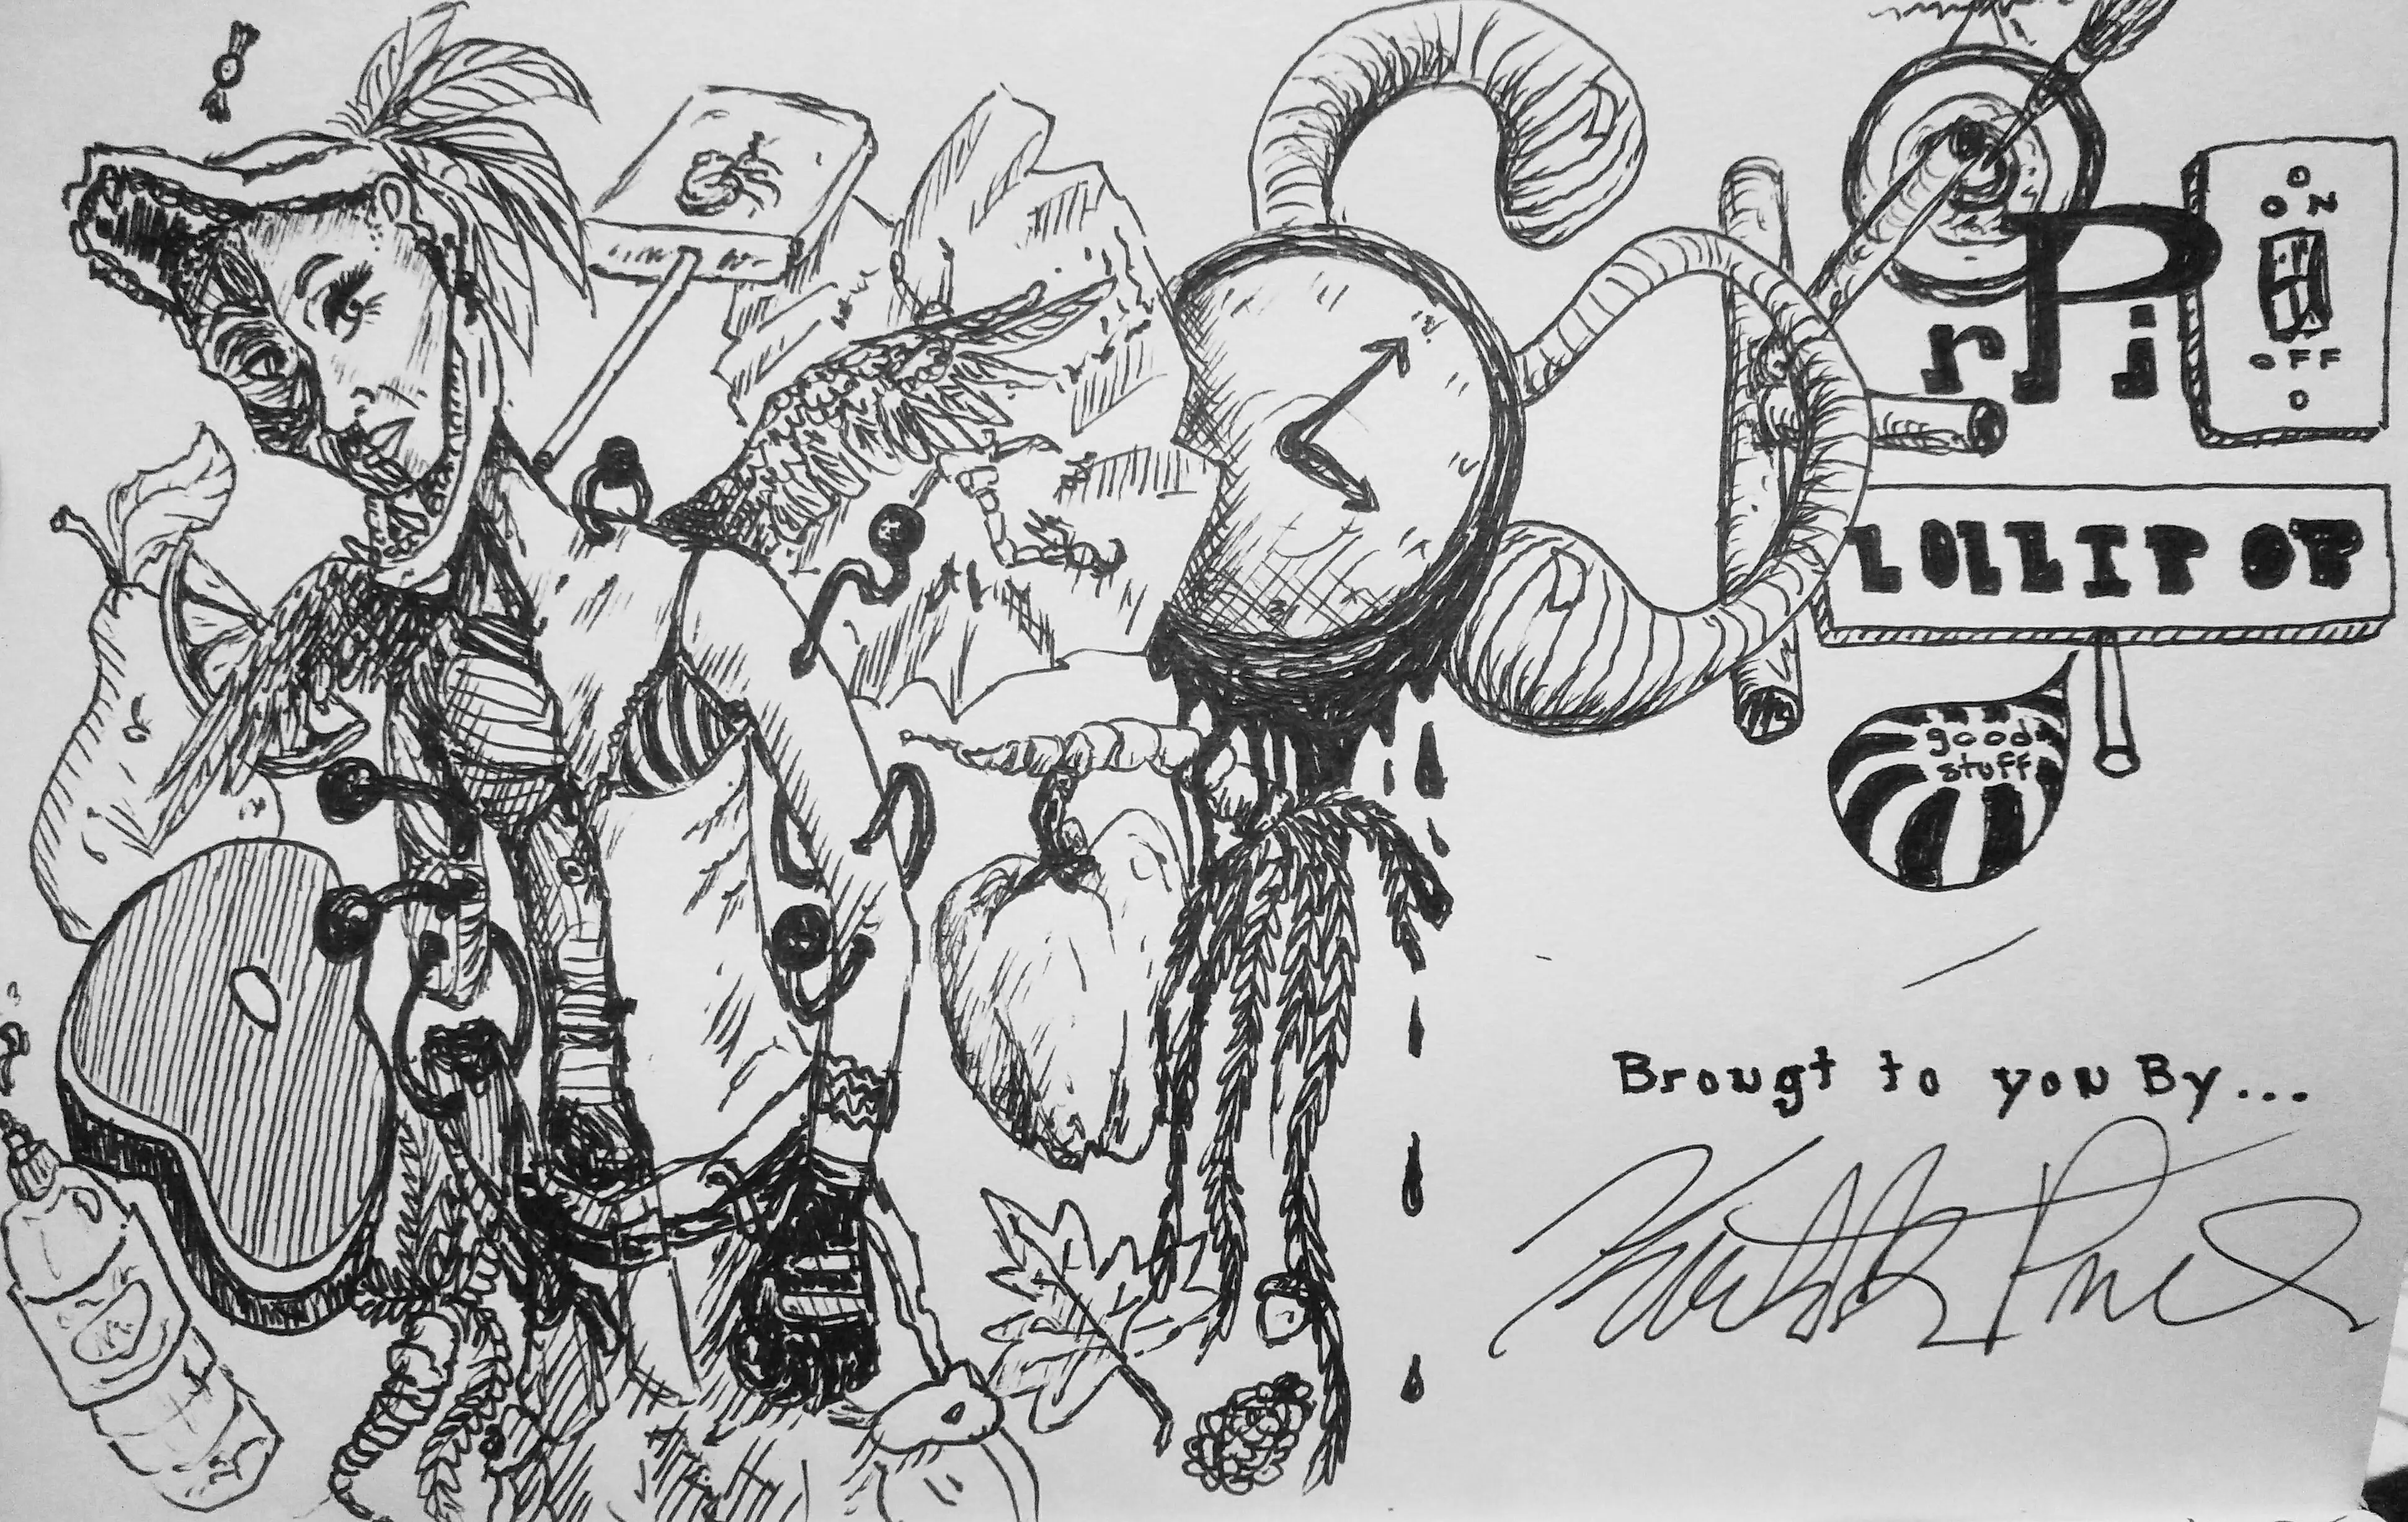 rPi
ON
OFF
LOLLIPOP
good
stuff
Brougt to you By...